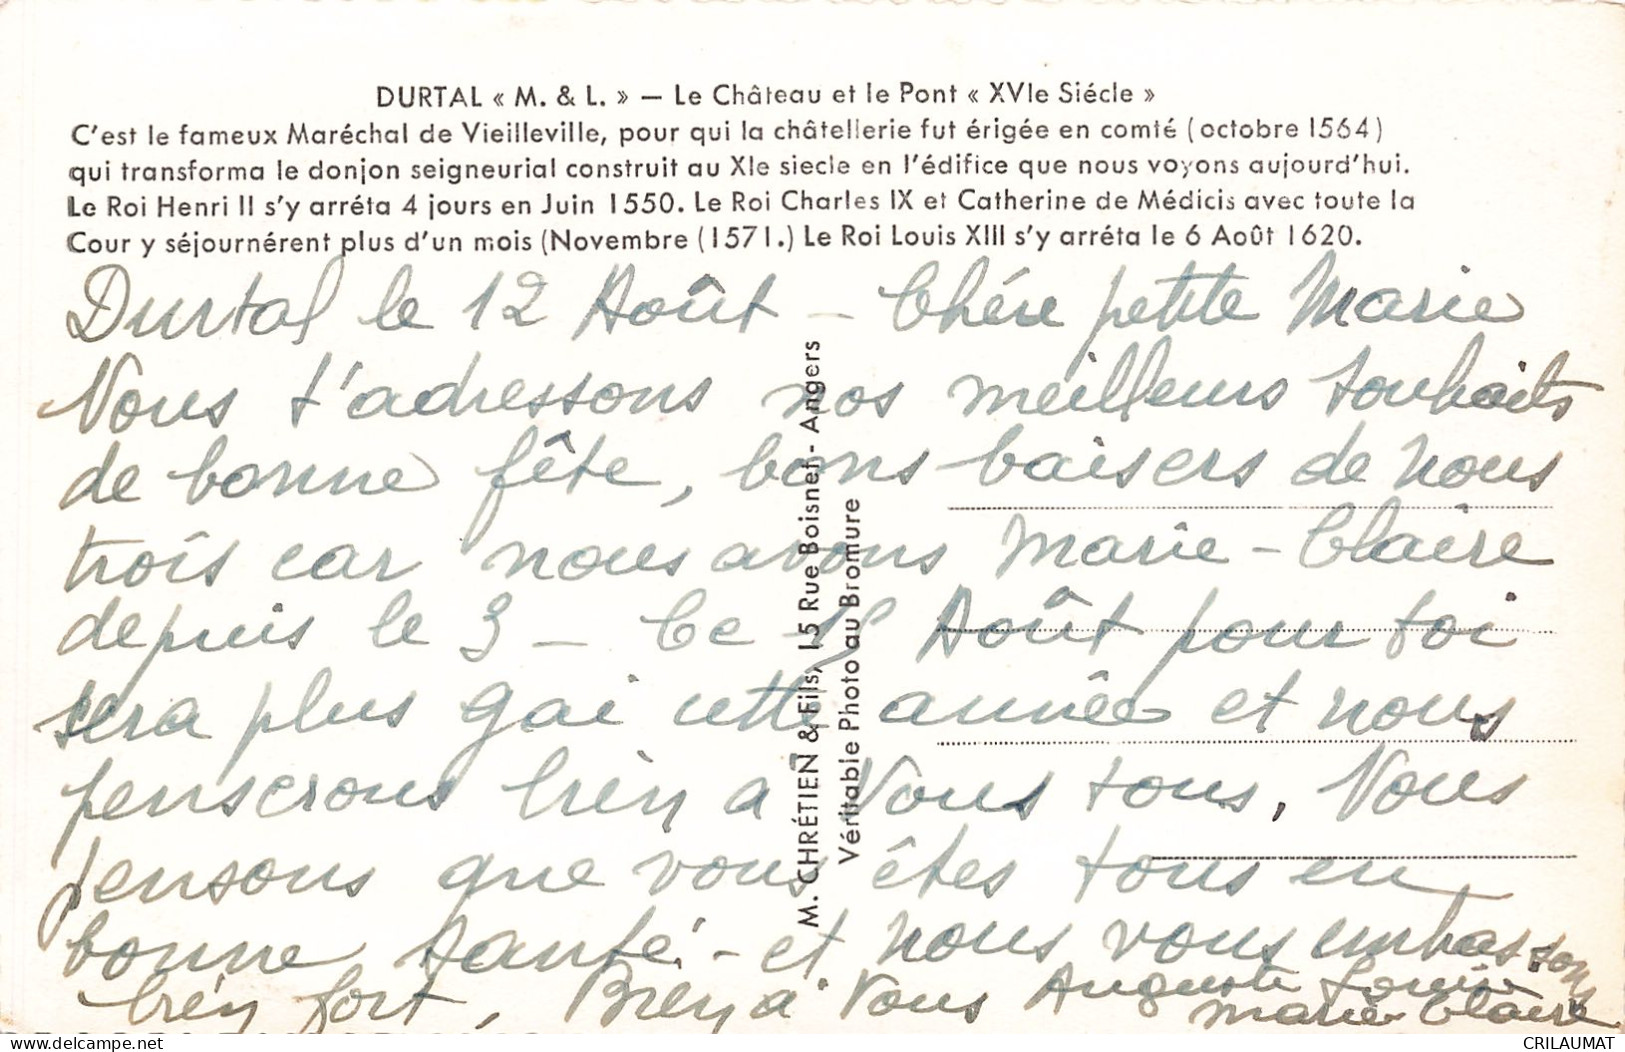 DURTAL « M. & L. » — Le Château et le Pont « XVIe Siécle »
C'est le fameux Maréchal de Vieilleville, pour qui la châtellerie fut érigée en comté (octobre 1564)
qui transforma le donjon seigneurial construit au XIe siecle en l'édifice que nous voyons aujourd'hui.
Le Roi Henri II s'y arréta 4 jours en Juin 1550. Le Roi Charles IX et Catherine de Médicis avec toute la
Cour y séjournérent plus d'un mois (Novembre (1571.) Le Roi Louis XIII s'y arréta le 6 Août 1620.
Durtal le 12 Août – Chére petite Marie
Nous t'adressons nos meilleurs souhaits
de bonne fête, bons baisers de nous
trois car nous avons Marie-Claire
depuis le 3 – Ce Août pour toi
sera plus gai cette année et nous
penserons bien a Vous tous, Nous
pensons que vous êtes tous en
bonne santé – et nous vous embrassons
bien fort, Bien a Vous Auguste Louise
Marie Claire
M. CHRÉTIEN & Fils, 15 Rue Boisnet - Angers
Véritable Photo au Bromure
CRILAUMAT